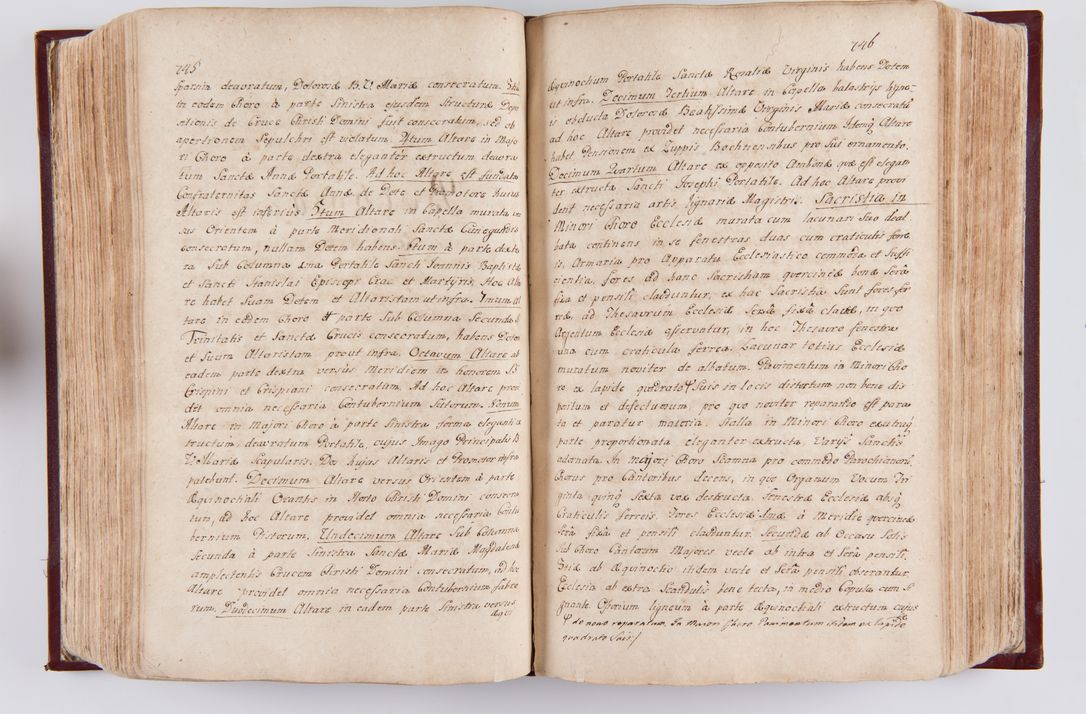 745
deauratum, Dolorosæ B. V. Mariæ consecratum.
in eodem Choro à parte Sinistra ejusdem Structuræ Depo
sitionis de Cruce Christi Domini fuit consecratum, sed ob
apertionem Sepulchri est violatum. Altare in Majo
ri Choro à parte dextra eleganter extructum deaura
tum Sanctæ Annæ Portatile. Ad hoc Altare est fundata
Confraternitas Sanctæ Annæ de Dote et Promotore hujus
Altaris est inferius Altare in Capella murata ver
sus Orientem à parte Meridionali Sanctæ Cunegundis
consecratum, nullam Dotem habens. à parte dexte
ra Sub Columna una Portatile Sancti Joannis Baptistæ
et Sancti Stanislai Episcopi Crac et Martyris, Hoc Alta
re habet Suam Dotem et Altaristam ut infra. Al
tare in eodem Choro et parte Sub Columna Secunda S.
Trinitatis et Sanctæ Crucis consecratum, habens Dotem
et Suum Altaristam prout infra. Octavum Altare ab
eadem parte dextra versus Meridiem in honorem S.
Crispini et Crispiani consecratum. Ad hoc Altare provi
det omnia necessaria Contubernium Sutorum. Nonum
Altare in Majori Choro à parte Sinistra forma eleganti ex
tructum, deauratum Portatile, cujus Imago Principalis B.
V. Mariæ Scapularis. Dos hujus Altaris et Promotor infra
patebunt. Decimum Altare versus Orientem à parte
Æquinochiali Orantis in Horto Christi Domini consecra
tum, ad hoc Altare providet omnia necessaria Contu
bernium Pistorum. Undecimum Altare Sub Columna
Secunda à parte Sinistra Sanctæ Mariæ Magdalenæ
amplectentis Crucem Christi Domini consecratum, ad hoc
Altare providet omnia necessaria Contubernium fabro
rum. Duodecimum Altare in eadem parte Sinistra versus
746
Æquinochium Portatile Sanctæ Rosaliæ Virginis habens Dotem
ut infra. Decimum Tertium Altare in Capella balastris ligne
is obducta Dolorosæ Beatissimæ Virginis Mariæ consecratum
ad hoc Altare providet necessaria Contubernium Idemq Altare
habet Pensionem ex Zuppis Bochnensibus pro Sui ornamento.
Decimum Quartum Altare ex opposito Ambonæ quæ est elegan
ter extructa Sancti Josephi Portatile. Ad hoc Altare provi
dent necessaria artis lignariæ Magistri. Sacristia in
Minori Choro Ecclesiæ murata cum lacunari Suo deal
bata continens in se fenestras duas cum craticulis ferre
is, Armaria pro Apparatu Ecclesiastico commoda et Suffi
cientia, fores ad hanc Sacristiam quercineæ bene Sera
fixa et pensili clauduntur, ex hac Sacristia Sunt fores fer
reæ, ad Thesaurum Ecclesiæ Sera fixa clausæ, in quo
Argentum Ecclesiæ asservatur, in hoc Thesauro fenestra
una cum craticula ferrea. Lacunar totius Ecclesiæ
muratum noviter de albatum. Pavimentum in Minori Cho
ro ex lapide quadrato Suis in locis distortum non bene dis
positum et defectuosum, pro quo noviter reparando est para
ta et paratur materia. Stalla in Minori Choro ex utraq
parte proportionata eleganter extructa, Varijs Sanctis
adornata. In majori Choro Scamna pro commodo Parochianorum
Chorus pro Cantoribus decens, in quo Organum Vocum Tri
ginta quinq Sexta vox destructa. Fenestræ Ecclesiæ absq
Craticulis ferreis. Fores Ecclesiæ à Meridie quercineæ
Sera fixa et pensili clauduntur. Secundæ ab Occasu Solis
Sub Choro Cantorum Majores vecte ab intra et Sera pensili,
ab Æquinochio itidem vecte et Sera pensili obserantur.
Ecclesia ab extra Scandulis bene tecta, in medio Copula cum S
gnante. Ossarium ligneum à parte Æquinochiali extructum cujus
de novo reparatum. In Maiori Choro Pavimentum itidem ex lapide
quadrato Suis